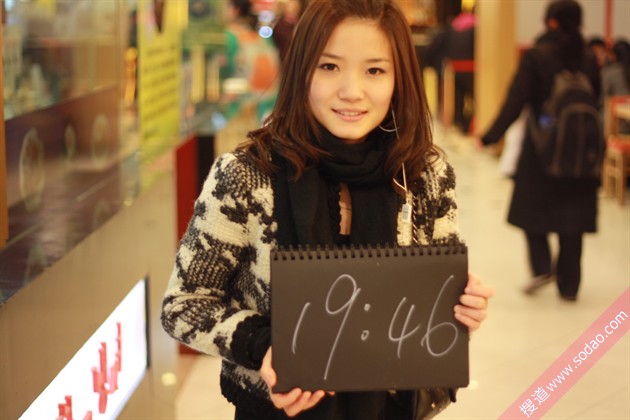 19:46
搜道 www.sodao.com